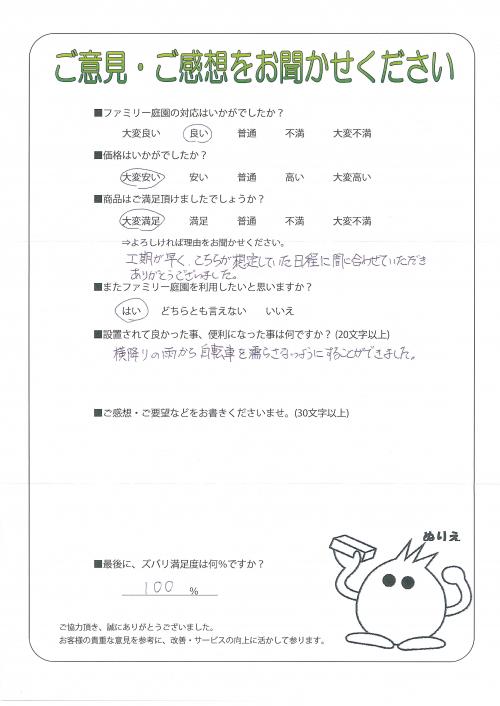 ご意見・ご感想をお聞かせください
■ファミリー庭園の対応はいかがでしたか？
大変良い　良い　普通　不満　大変不満
■価格はいかがでしたか？
大変安い　安い　普通　高い　大変高い
■商品はご満足頂けましたでしょうか？
大変満足　満足　普通　不満　大変不満
⇒よろしければ理由をお聞かせください。
工期が早く、こちらが想定していた日程に間に合わせていただき
ありがとうございました。
■またファミリー庭園を利用したいと思いますか？
はい　どちらとも言えない　いいえ
■設置されて良かった事、便利になった事は何ですか？(20文字以上)
横降りの雨から自転車を濡らさないようにすることができました。
■ご感想・ご要望などをお書きくださいませ。(30文字以上)
ぬりえ
■最後に、ズバリ満足度は何%ですか？
100 %
ご協力頂き、誠にありがとうございました。
お客様の貴重な意見を参考に、改善・サービスの向上に活かして参ります。